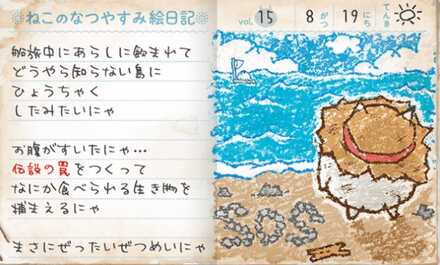 ねこのなつやすみ絵日記
vol. 15 8がつ 19にち てんき
船旅中にあらしに飲まれて
どうやら知らない島に
ひょうちゃく
したみたいにゃ
お腹がすいたにゃ…
伝説の罠をつくって
なにか食べられる生き物を
捕まえるにゃ
まさにぜったいぜつめいにゃ
SOS